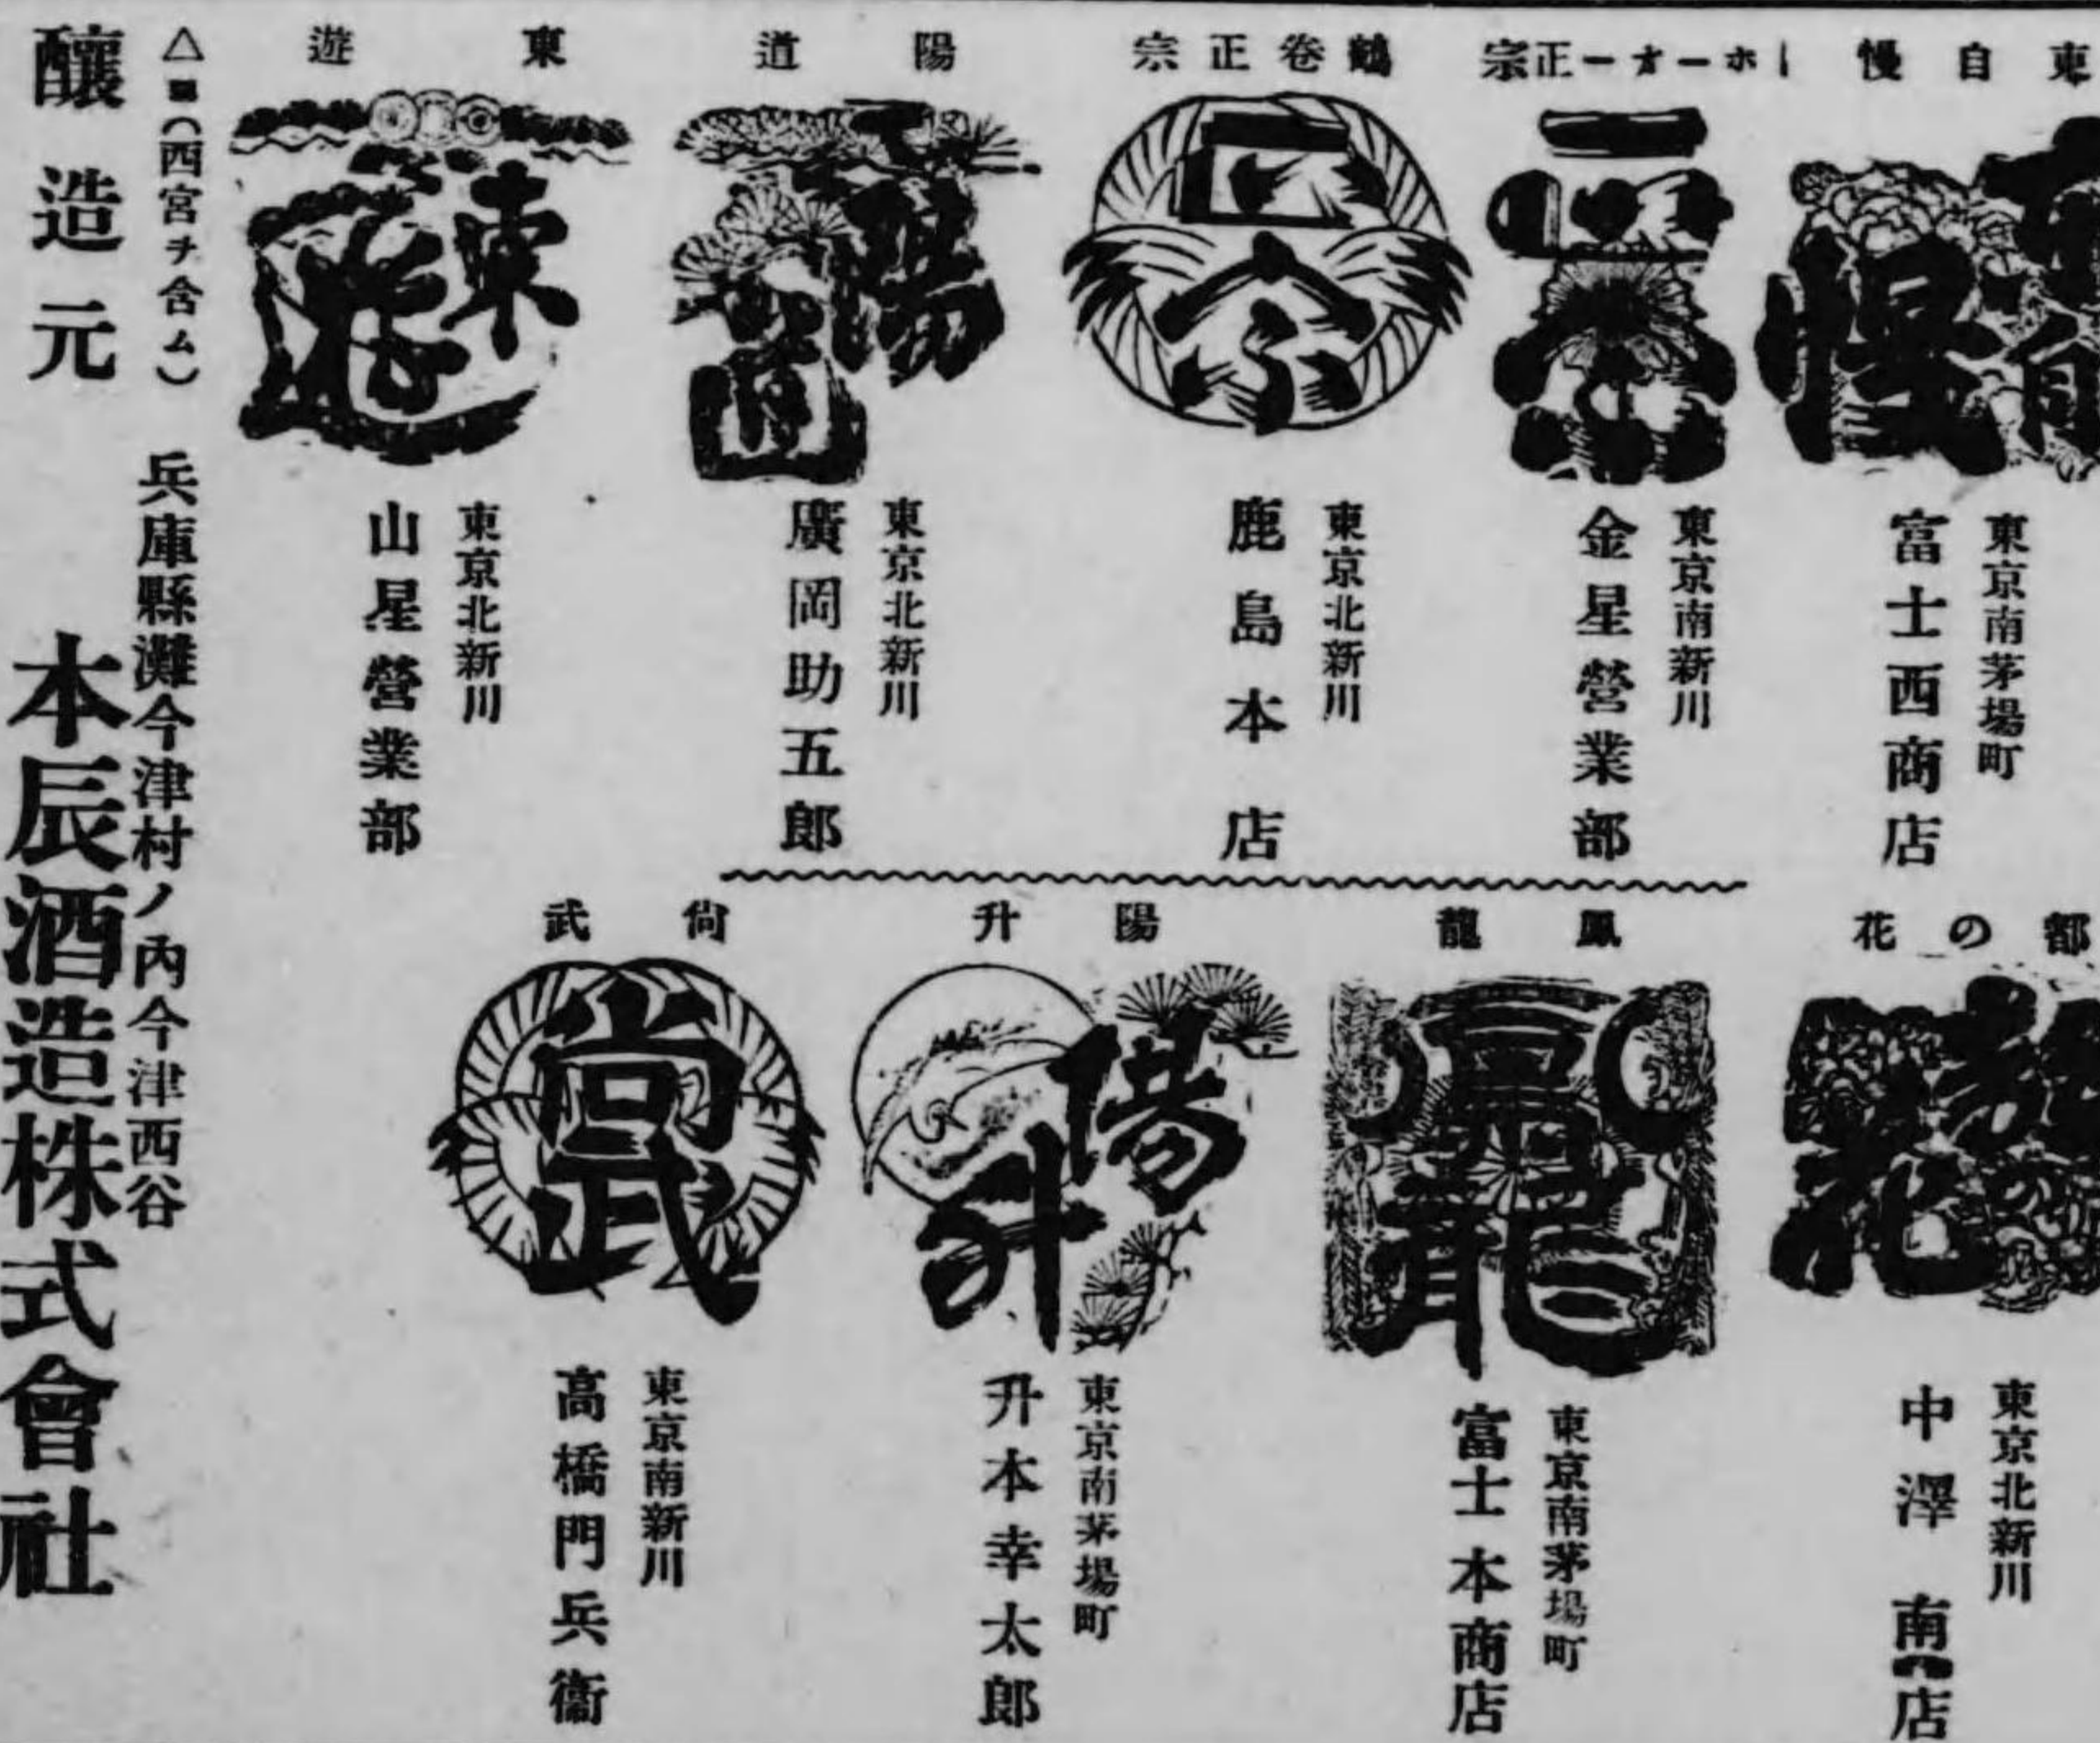 東自慢
東京南茅場町
富士西商店
ーホーオー正宗
東京南新川
金星營業部
鶴卷正宗
東京北新川
鹿島本店
陽道
東京北新川
廣岡助五郎
東遊
東遊
東京北新川
山星營業部
都の花
東京北新川
中澤南店
鳳龍
東京南茅場町
富士本商店
陽升
陽升
東京南茅場町
升本幸太郎
尙武
尙武
東京南新川
高橋門兵衞
(西宮チ含ム)
兵庫縣灘今津村ノ內今津西谷
釀造元
本辰酒造株式會社